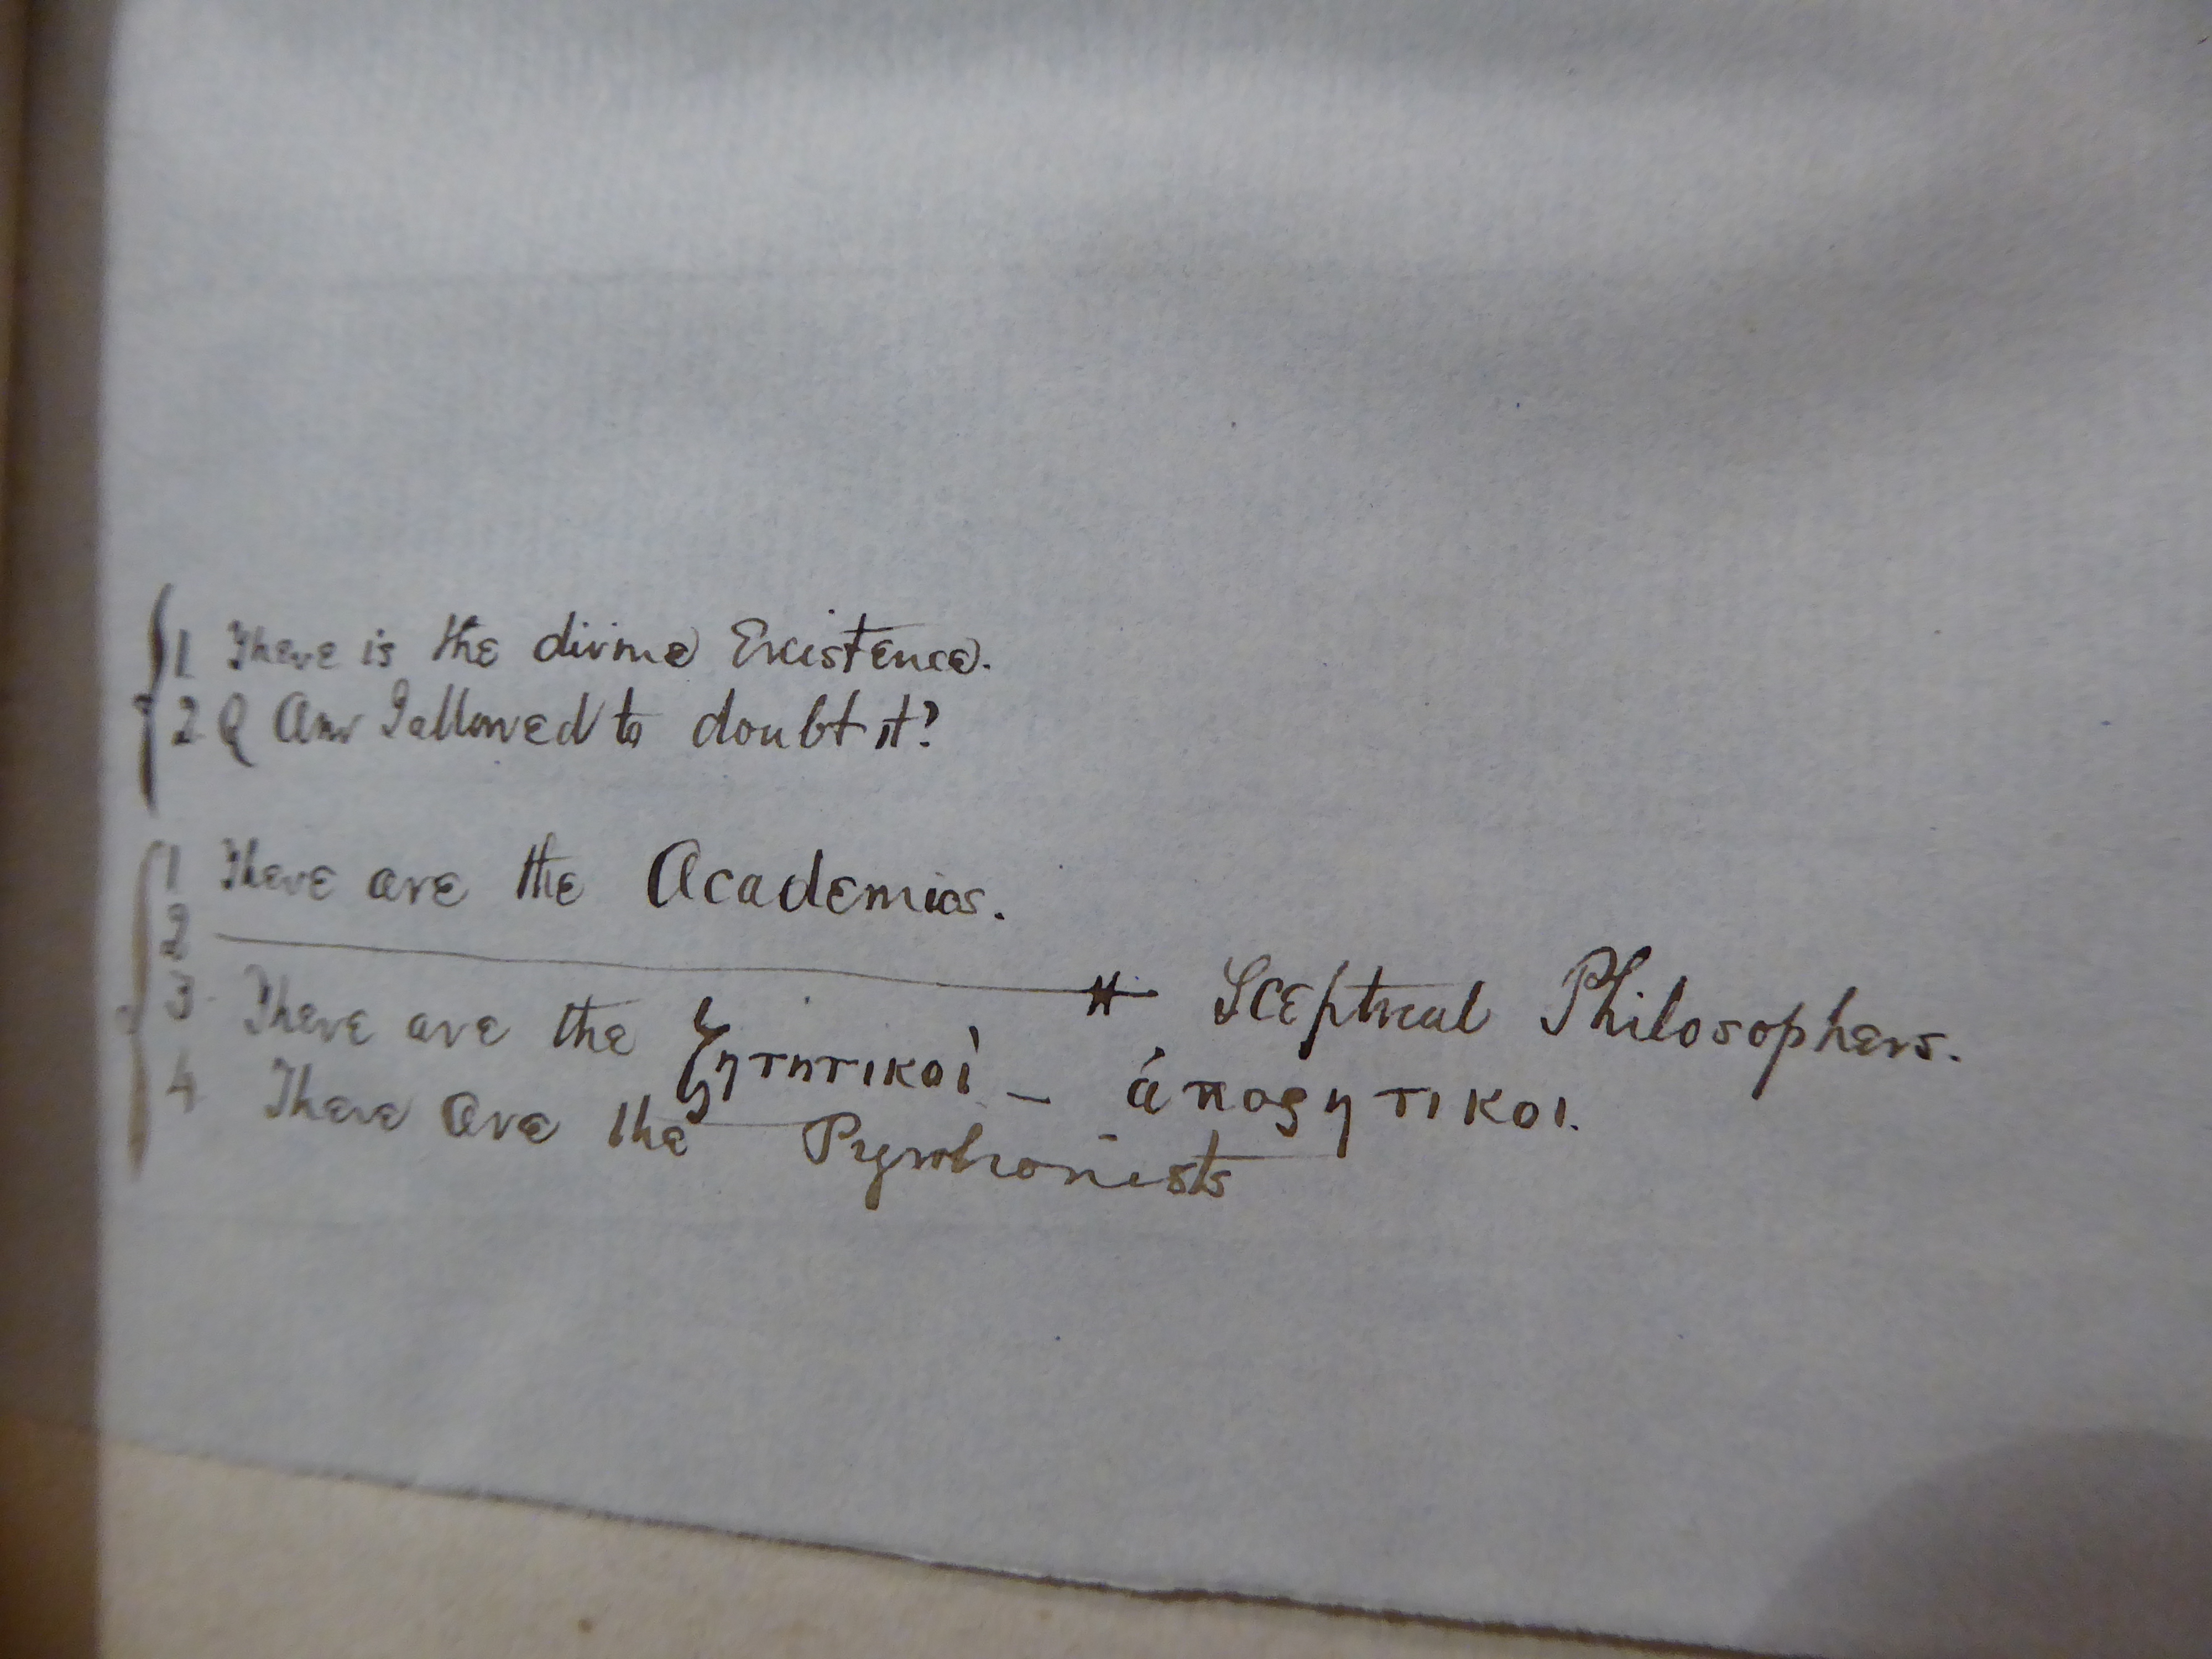 1 There is the divine Existence.
2 Q Am I allowed to doubt it?
1 There are the Academics.
2 ———— # Sceptical Philosophers.
3 There are the ζητητικοὶ – ἀποςητικοι.
4 There are the Pyrrhonists